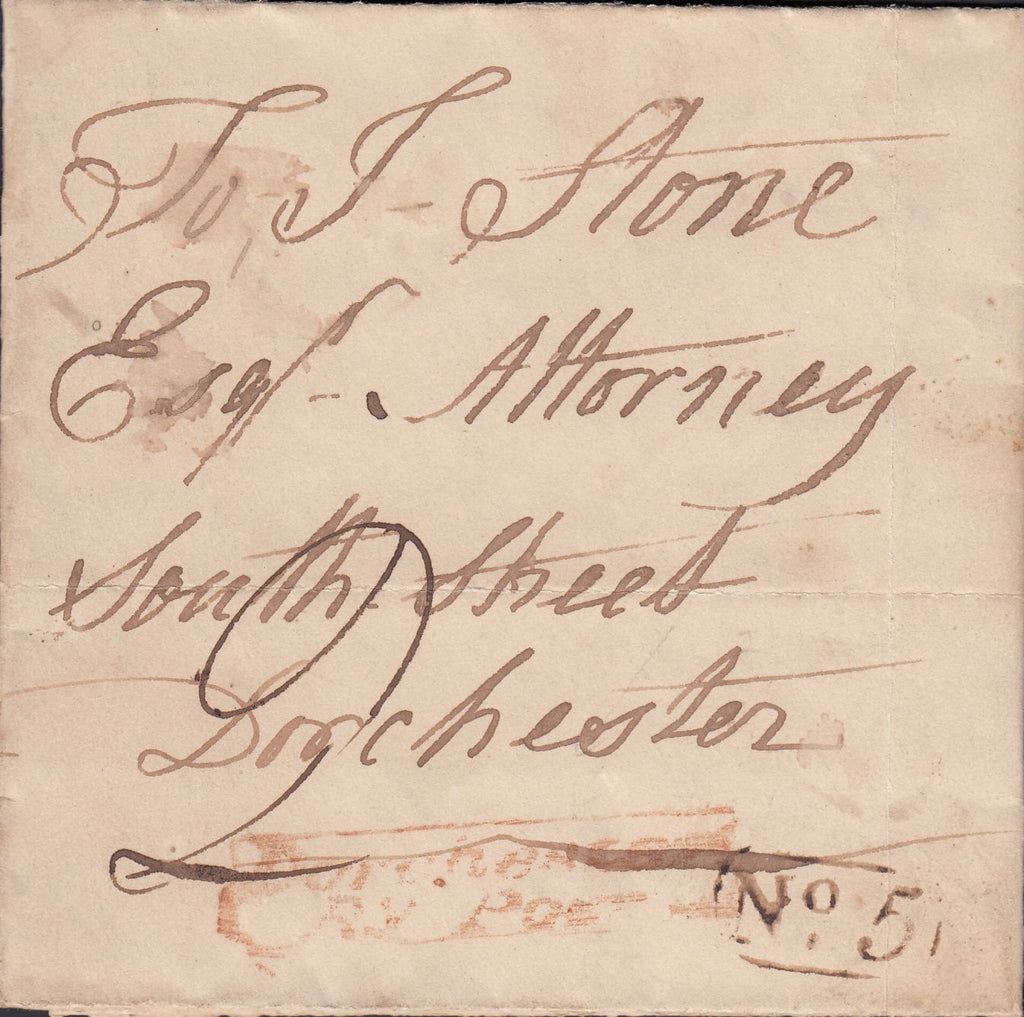 To J - Stone
Esqr - . Attorney
South Street
Dorchester
2
Py Post
No. 5